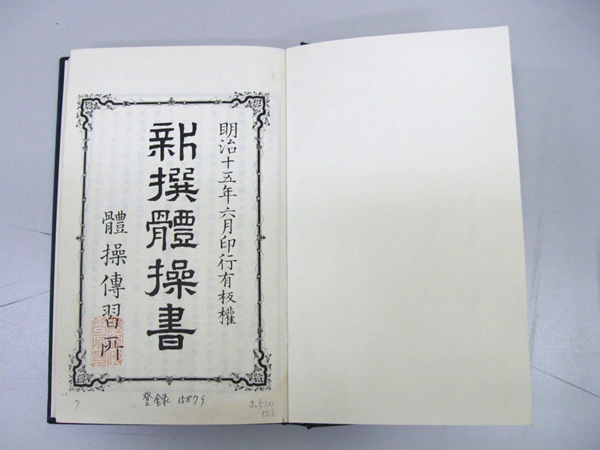 明治十五年六月印行有板權
新撰體操書
體操傳習所
登録 15879
7